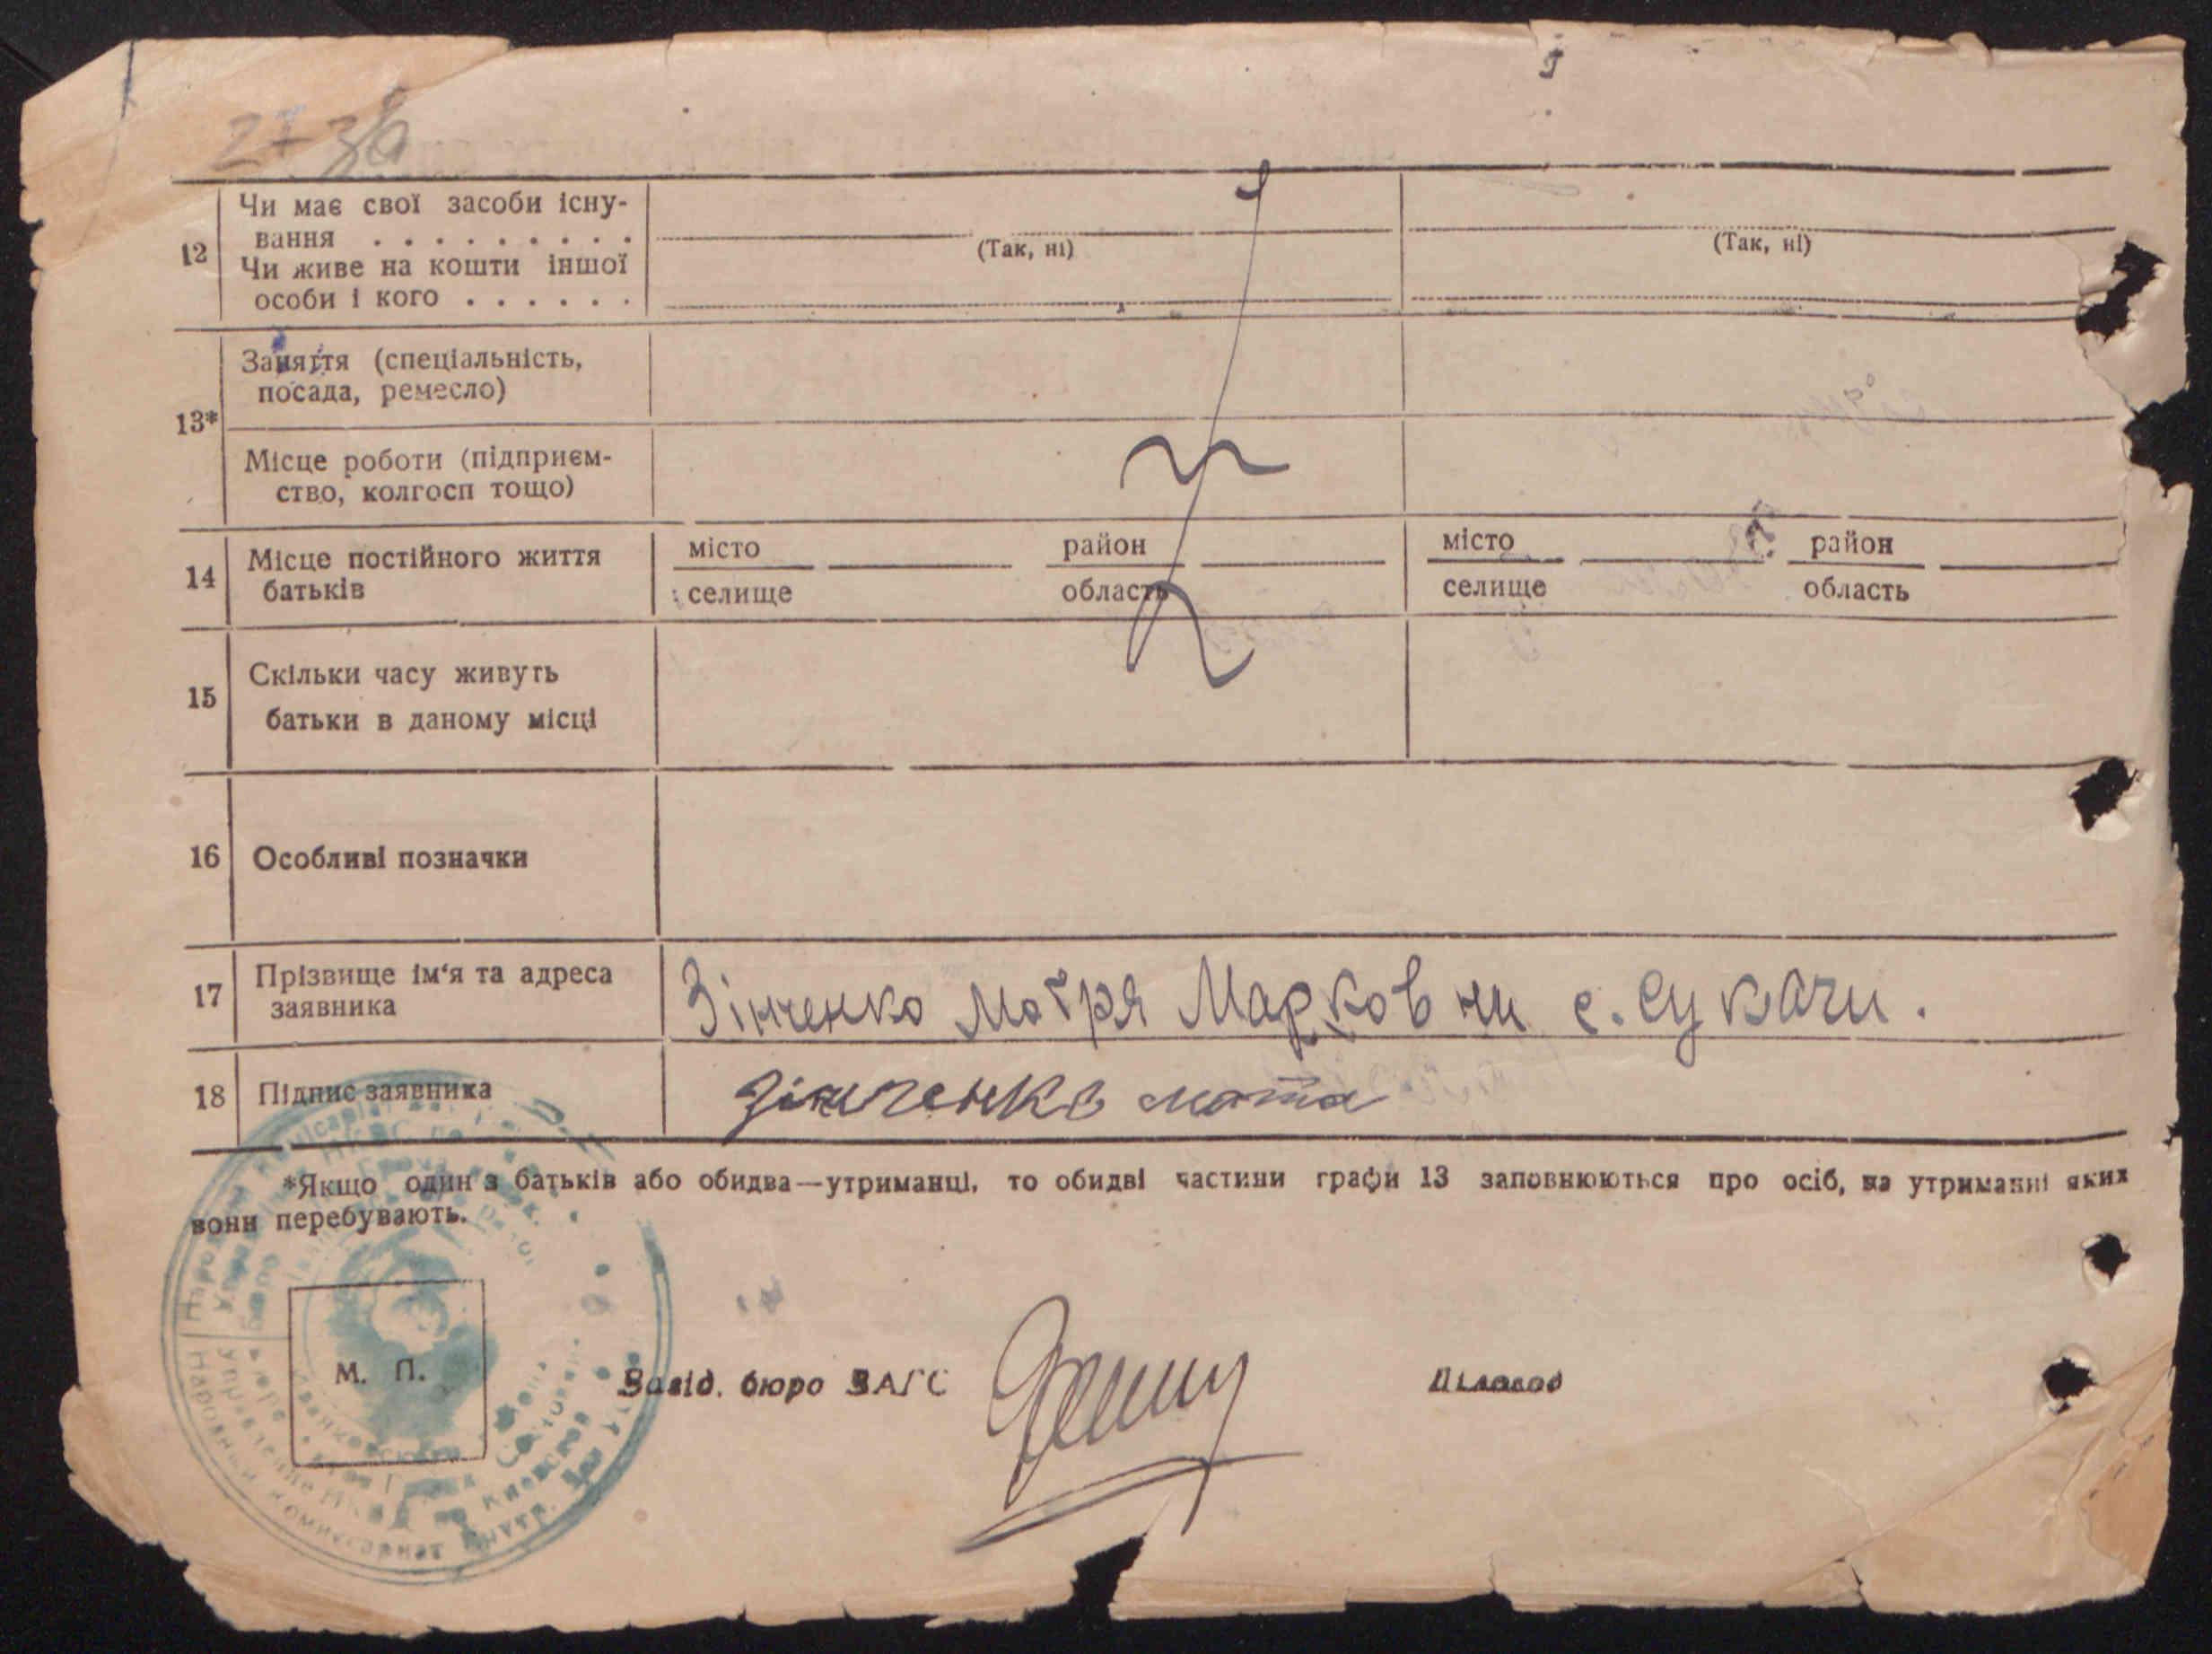 12
Чи має свої засоби існу-
вання . . . . . . . . .
(Так, ні)
(Так, ні)
Чи живе на кошти іншої
особи і кого . . . . . .
13*
Заняття (спеціальність,
посада, ремесло)
Місце роботи (підприєм-
ство, колгосп тощо)
14
Місце постійного життя
батьків
місто район місто район
селище область селище область
15
Скільки часу живуть
батьки в даному місці
16 Особливі позначки
17
Прізвище ім‘я та адреса
заявника
Зінченко Мотря Марковни с. Сукачи.
18 Підпис заявника Зінченко
*Якщо один з батьків або обидва—утриманці, то обидві частини графи 13 заповнюються про осіб, на утриманні яких
вони перебувають.
М. П.
Завід. бюро ЗАГС